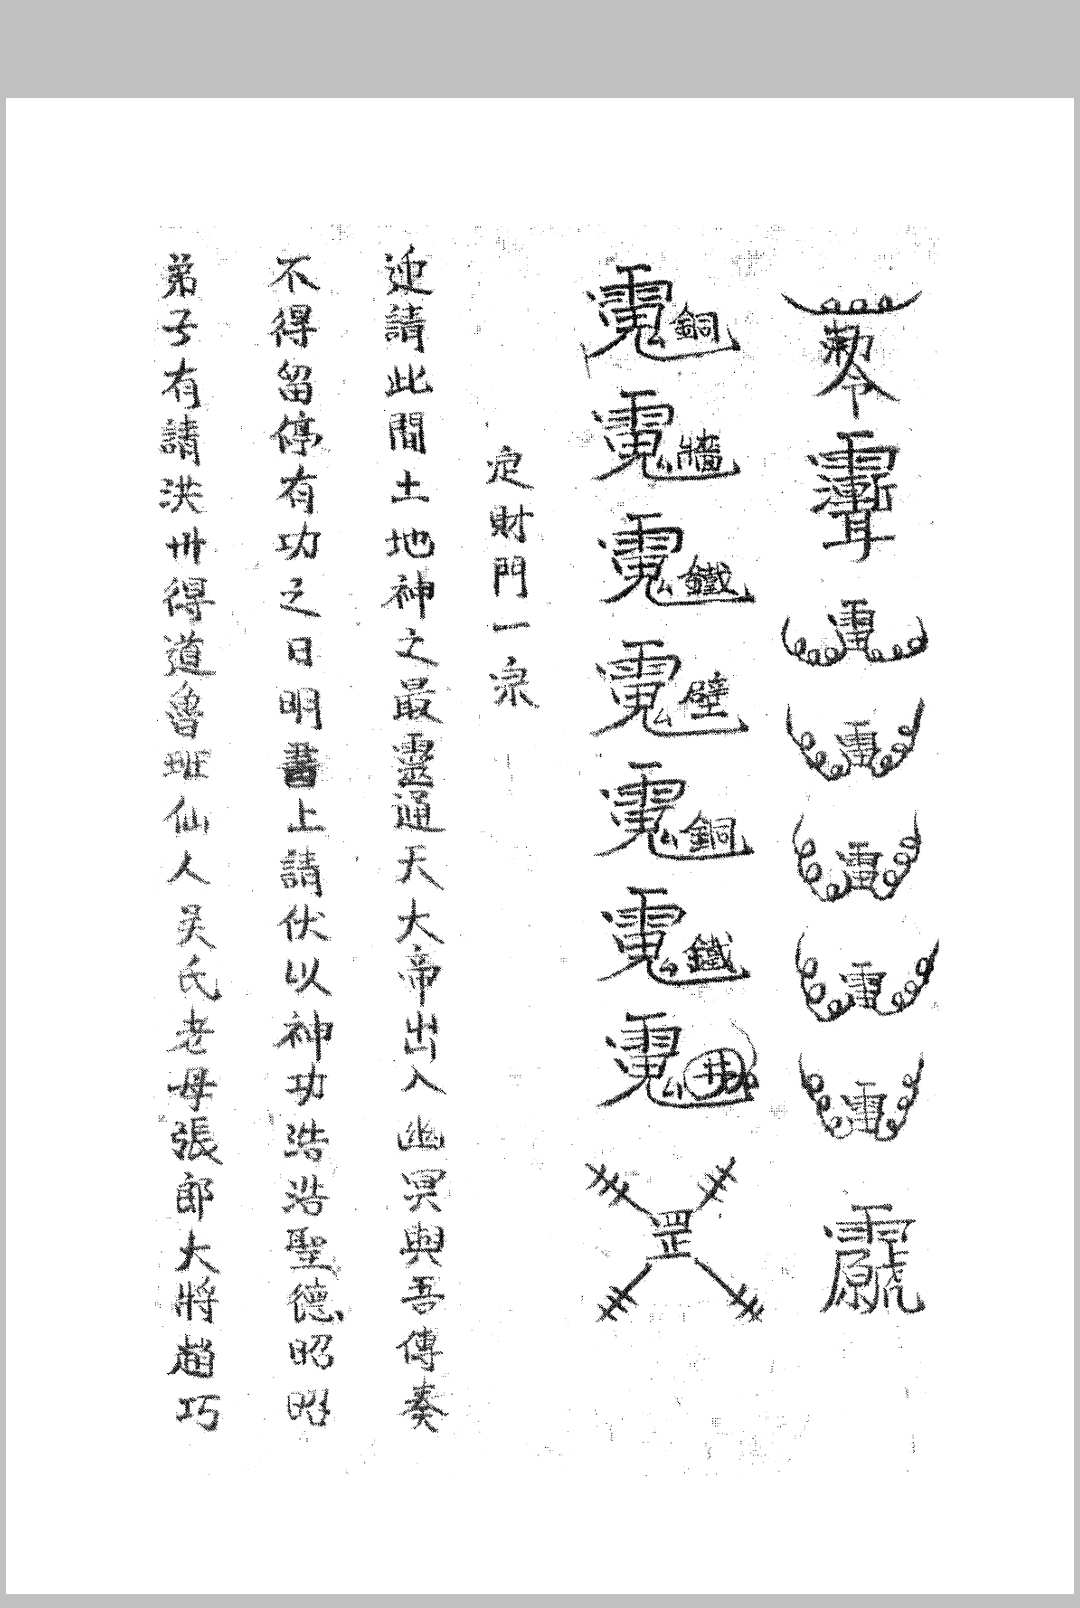 勅令
雷
雷
雷
雷
雷
銅
牆
鐵
壁
銅
鐵
井
罡
定財門一宗
迎請此間土地神之最靈通天大帝出入幽冥與吾傳奏
不得留停有功之日明書上請伏以神功浩浩聖德昭昭
弟子有請洪州得道魯班仙人吳氏老母張郎大將趙巧